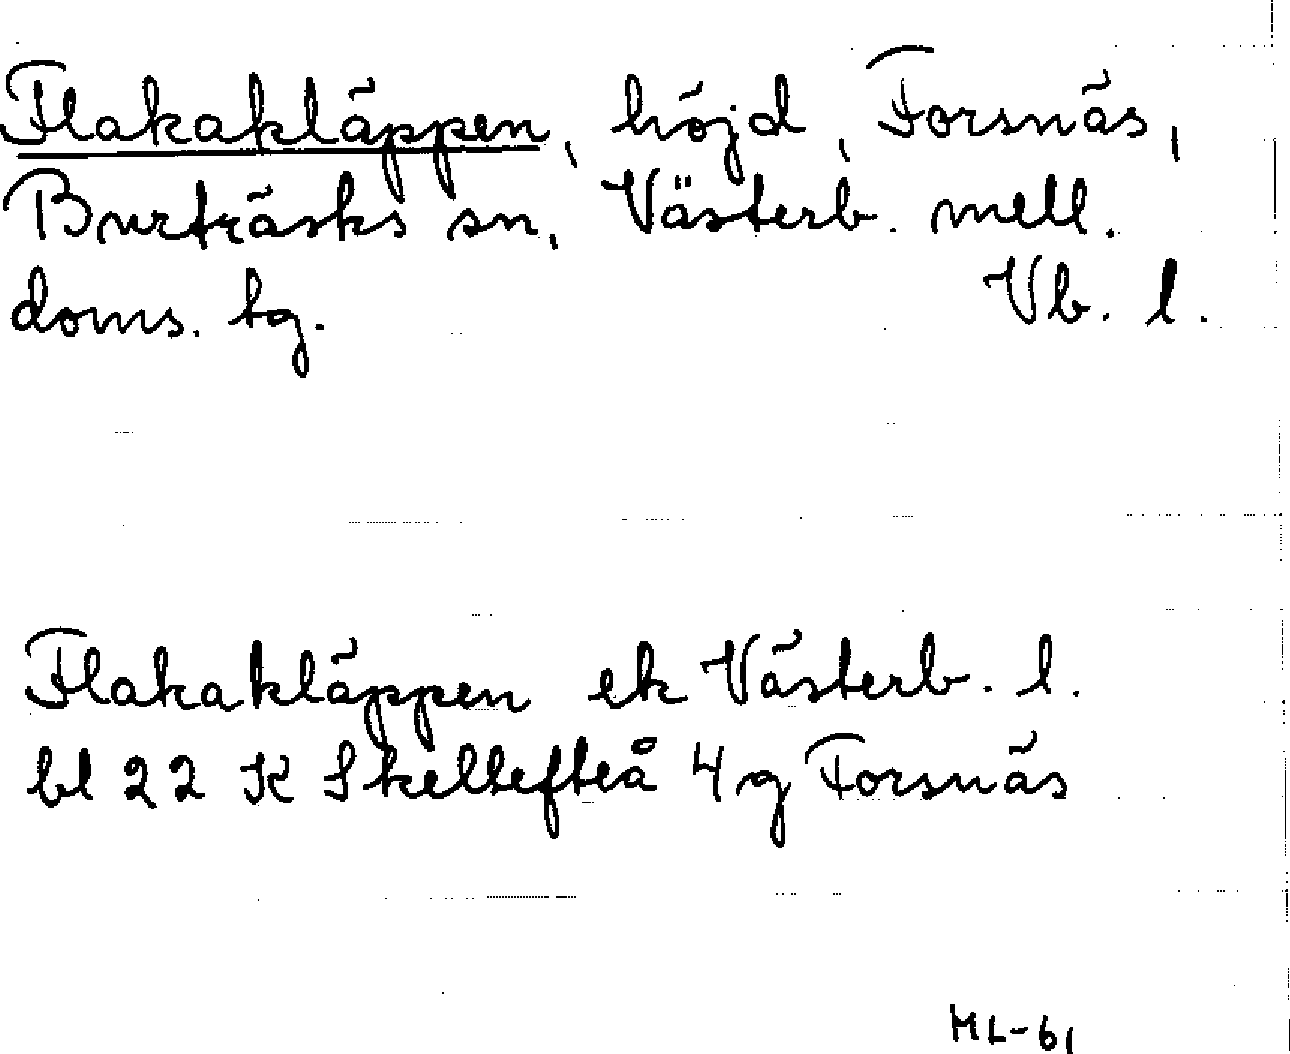 Flakakläppen, höjd, Forsnäs,
Burträsks sn, Västerb. mell.
doms. tg. Vb. l.
Flakakläppen ek Västerb. l.
bl 22 K Skellefteå 4 g Forsnäs
ML-61